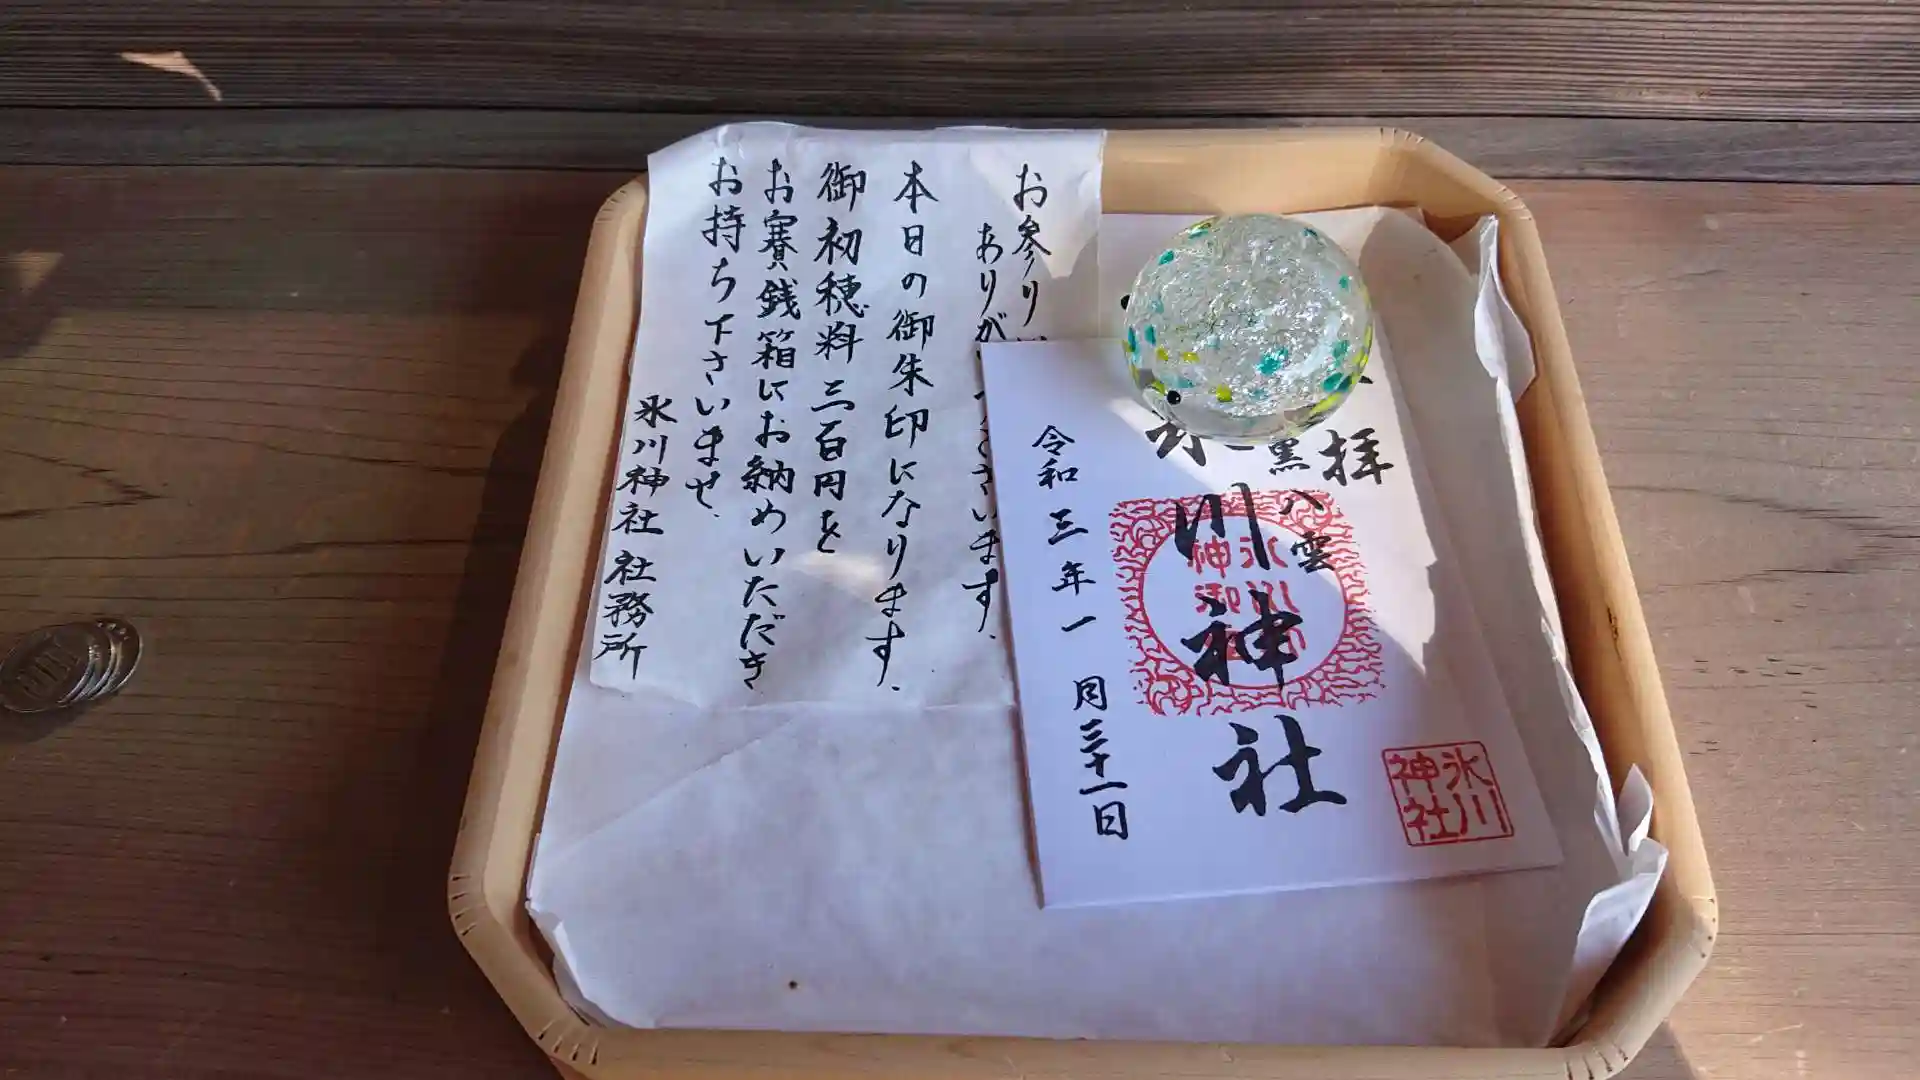 お参り
ありがとうございます。
本日の御朱印になります。
御初穂料三百円を
お賽銭箱にお納めいただき
お持ち下さいませ。
氷川神社 社務所
拝
黒 八雲
氷川神社
令和三年一月三十一日
氷川
神社